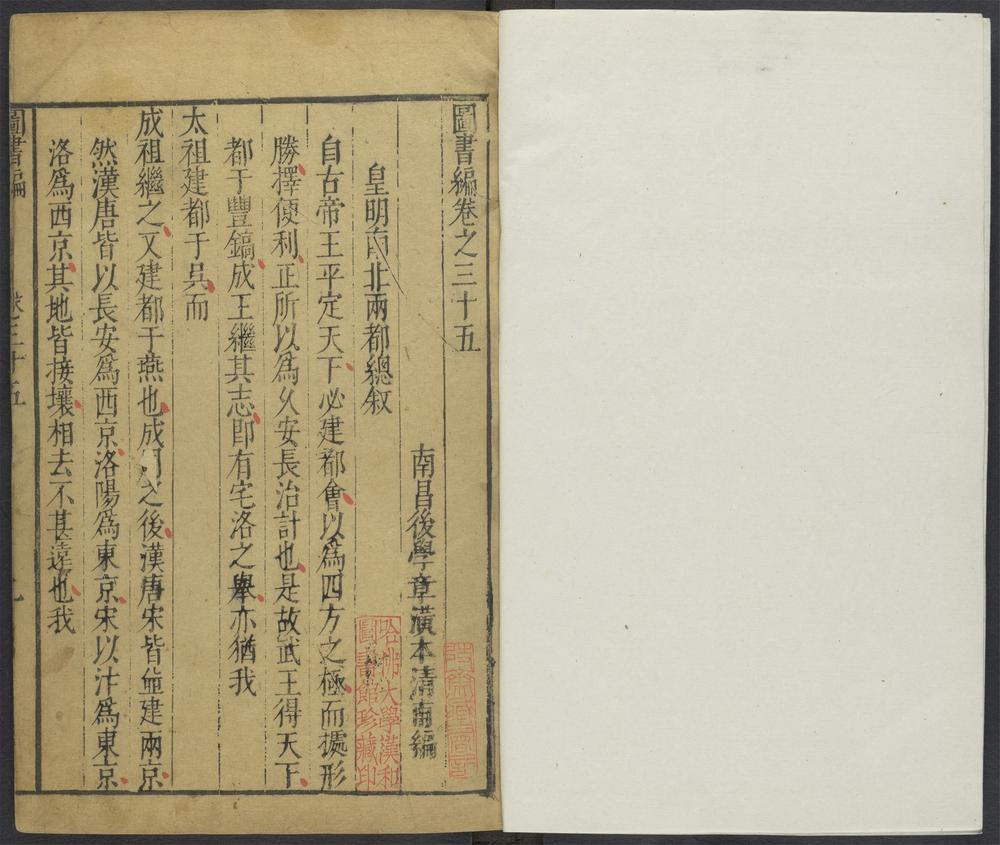 圖書編卷之三十五
南昌後學章潢本清甫編
皇明南北兩都總敘
自古帝王平定天下必建都會以爲四方之極而據形
勝擇便利正所以爲久安長治計也是故武王得天下
都于豐鎬成王繼其志卽有宅洛之舉亦猶我
太祖建都于吳而
成祖繼之又建都于燕也成周之後漢唐宋皆並建兩京
然漢唐皆以長安爲西京洛陽爲東京宋以汴爲東京
洛爲西京其地皆接壤相去不甚遠也我
圖書編
卷三十五
哈佛大學漢和
圖書館珍藏印